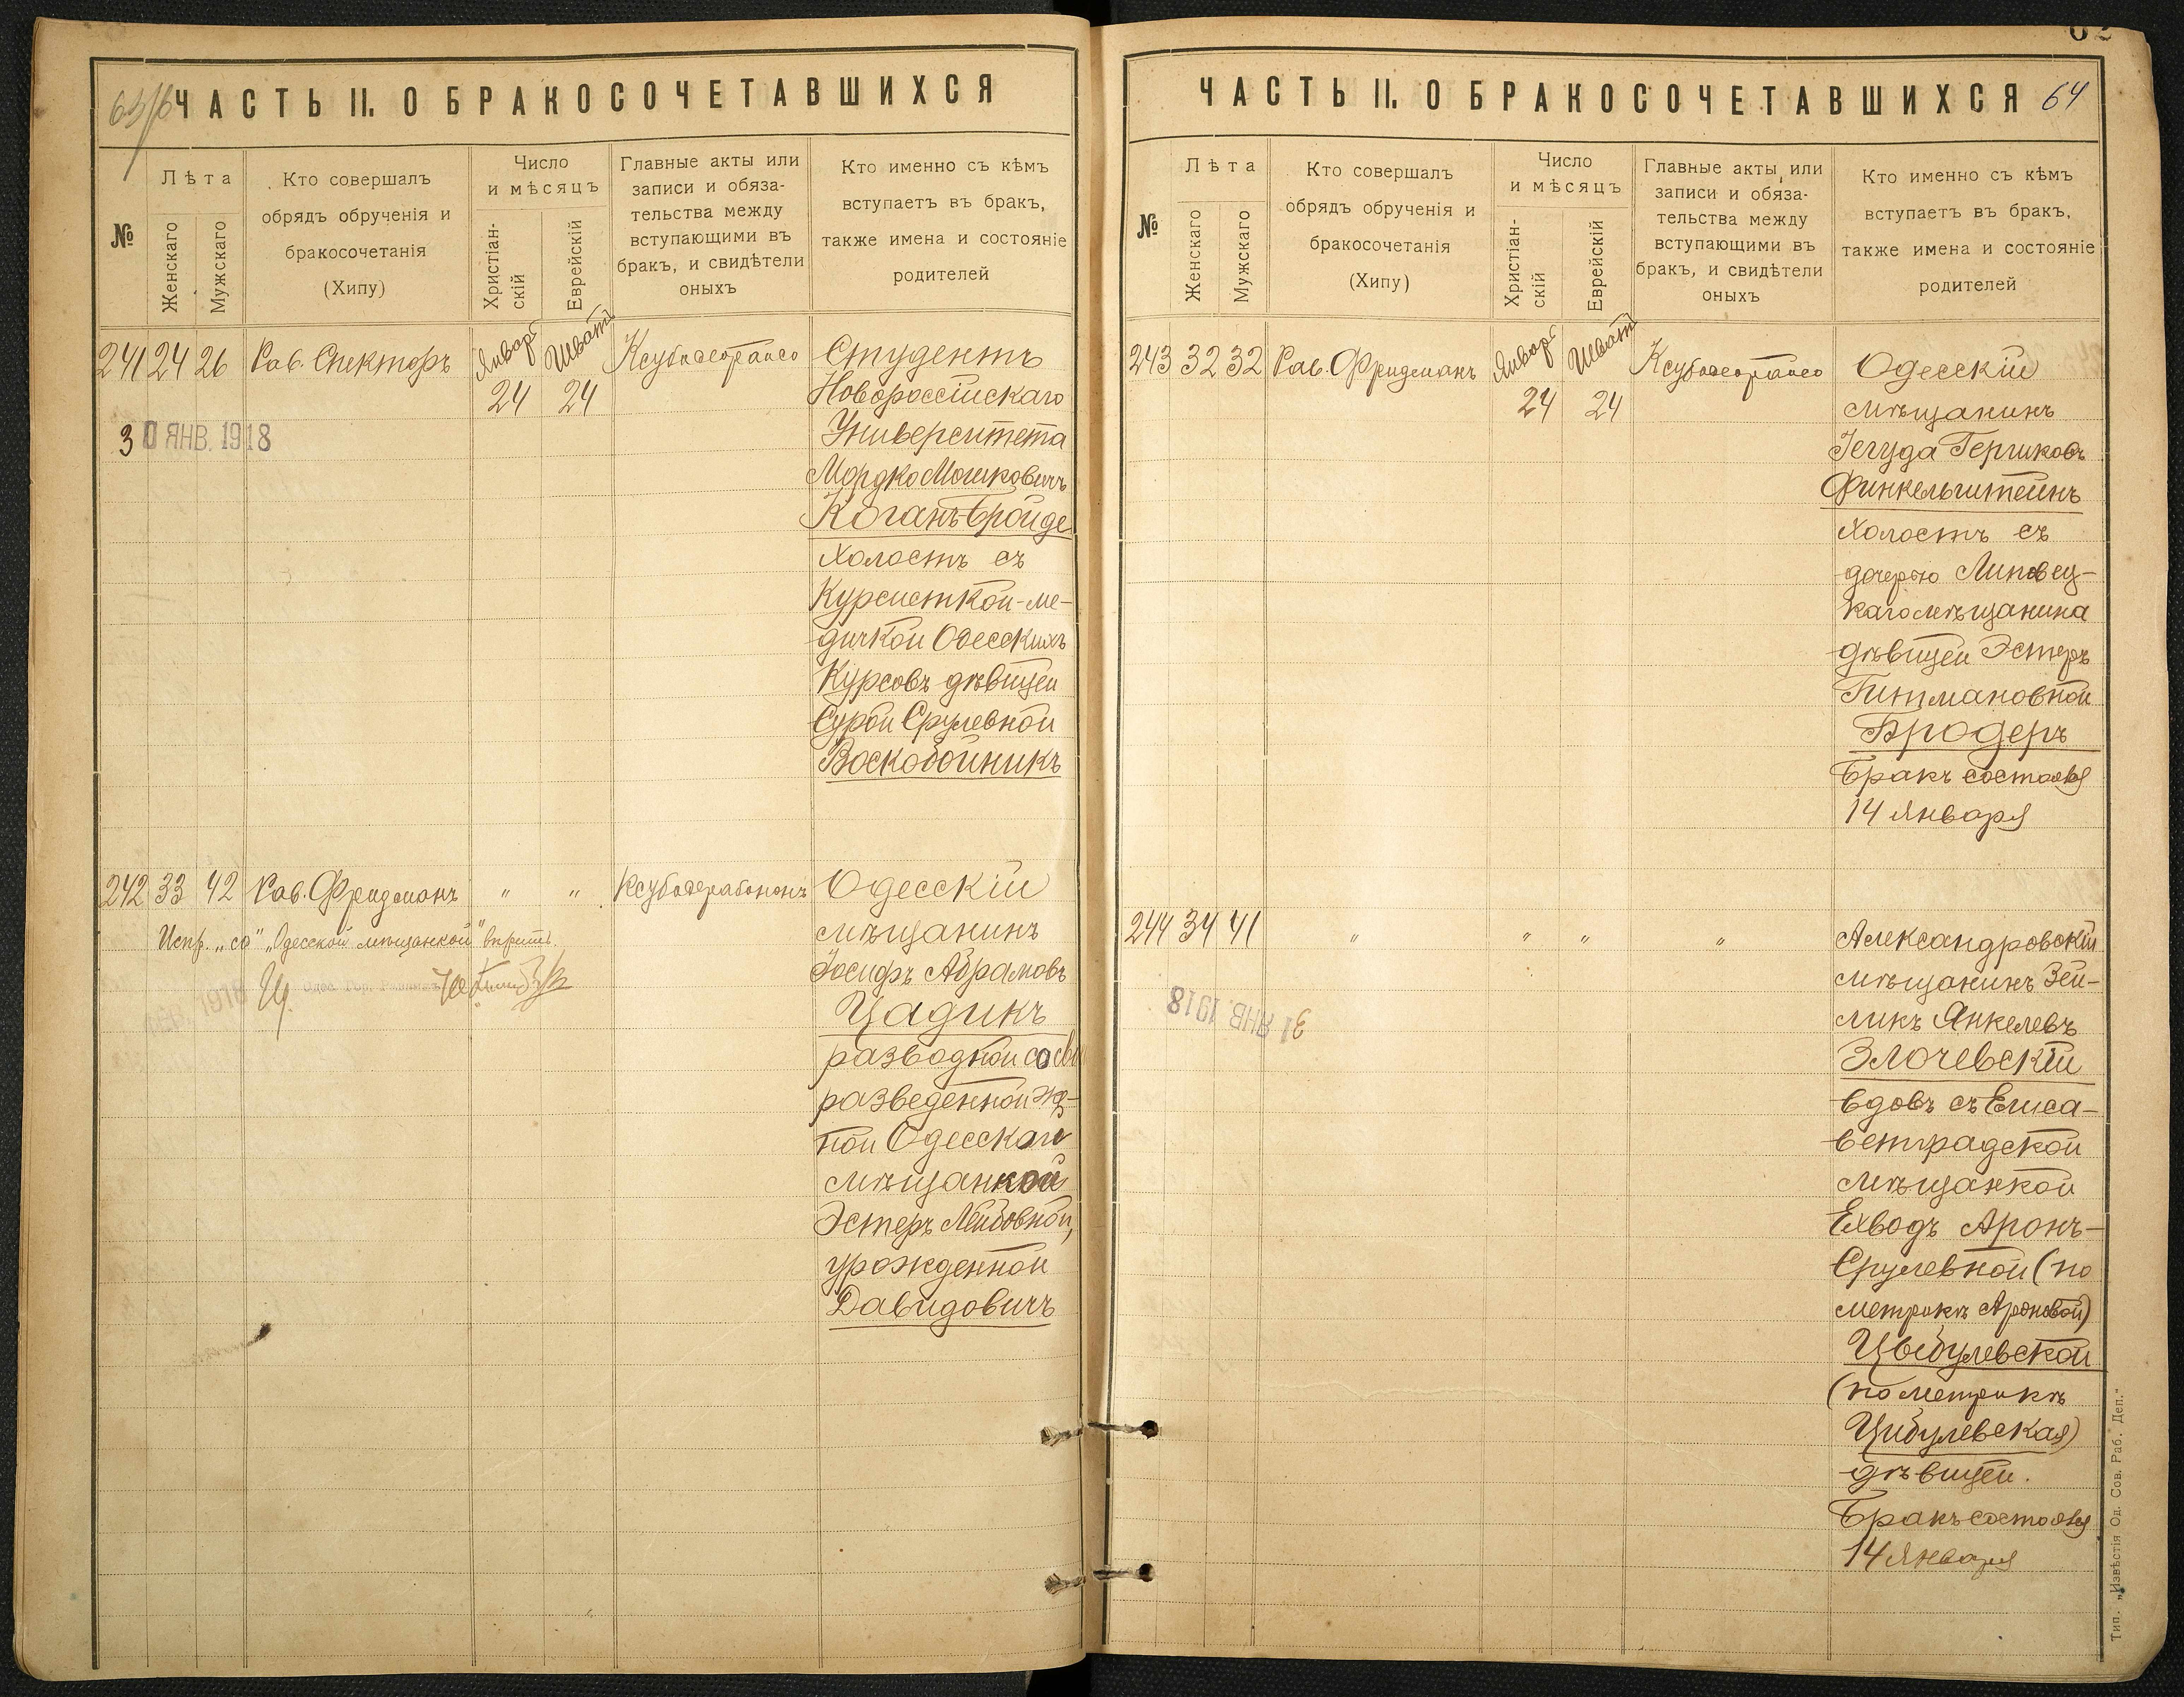 ЧАСТЬ II. О БРАКОСОЧЕТАВШИХСЯ
№
Лѣта
Женскаго
Мужскаго
Кто совершалъ
обрядъ обрученія и
бракосочетанія
(Хипу)
Число
и мѣсяцъ
Христіан-
скій
Еврейскій
Главные акты или
записи и обяза-
тельства между
вступающими въ
бракъ, и свидѣтели
оныхъ
Кто именно съ кѣмъ
вступаетъ въ бракъ,
также имена и состояніе
родителей
241 24 26 Рав. Спекторъ Январь 24 Шватъ 24
Студентъ
Новороссійскаго
Университета
Мордко Мошковичъ
Коганъ-Бройде
холостъ съ
Курсисткой-ме-
дичкой Одесскихъ
Курсовъ дѣвицей
Сурой Срулевной
Воскобойникъ
30 ЯНВ. 1918
242 33 42 Рав. Фридманъ " "
Испр. „со" „Одесской мѣщанкой" вѣрить.
Одесскій
мѣщанинъ
Іосифъ Абрамовъ
Цадикъ
разводной со
разведенной
Одесской
мѣщанкой
Эстеръ Лейбовной,
урожденной
Давидовичъ
62
ЧАСТЬ II. О БРАКОСОЧЕТАВШИХСЯ 64
№
Лѣта
Женскаго
Мужскаго
Кто совершалъ
обрядъ обрученія и
бракосочетанія
(Хипу)
Число
и мѣсяцъ
Христіан-
скій
Еврейскій
Главные акты или
записи и обяза-
тельства между
вступающими въ
бракъ, и свидѣтели
оныхъ
Кто именно съ кѣмъ
вступаетъ въ бракъ,
также имена и состояніе
родителей
243 32 32 Рав. Фридманъ Январь 24 Шватъ 24
Одесскій
мѣщанинъ
Іегуда Гершковъ
Финкельштейнъ
холостъ съ
дочерью Липовец-
каго мѣщанина
дѣвицей Эстеръ
Гитмановной
Бродеръ
Бракъ состоялся
14 Января
244 34 41 " " " "
Александровскій
мѣщанинъ Зей-
ликъ Янкелевъ
Злочевскій
вдовъ съ Елиса-
ветградской
мѣщанкой
Ехводъ Аронъ-
Срулевной (по
метрикѣ Ароновой)
Цыбулевской
(по метрикѣ
Цибулевская)
дѣвицей.
Бракъ состоялся
14 Января
31 ЯНВ. 1918
Тип. „Извѣстія Од. Сов. Раб. Деп."